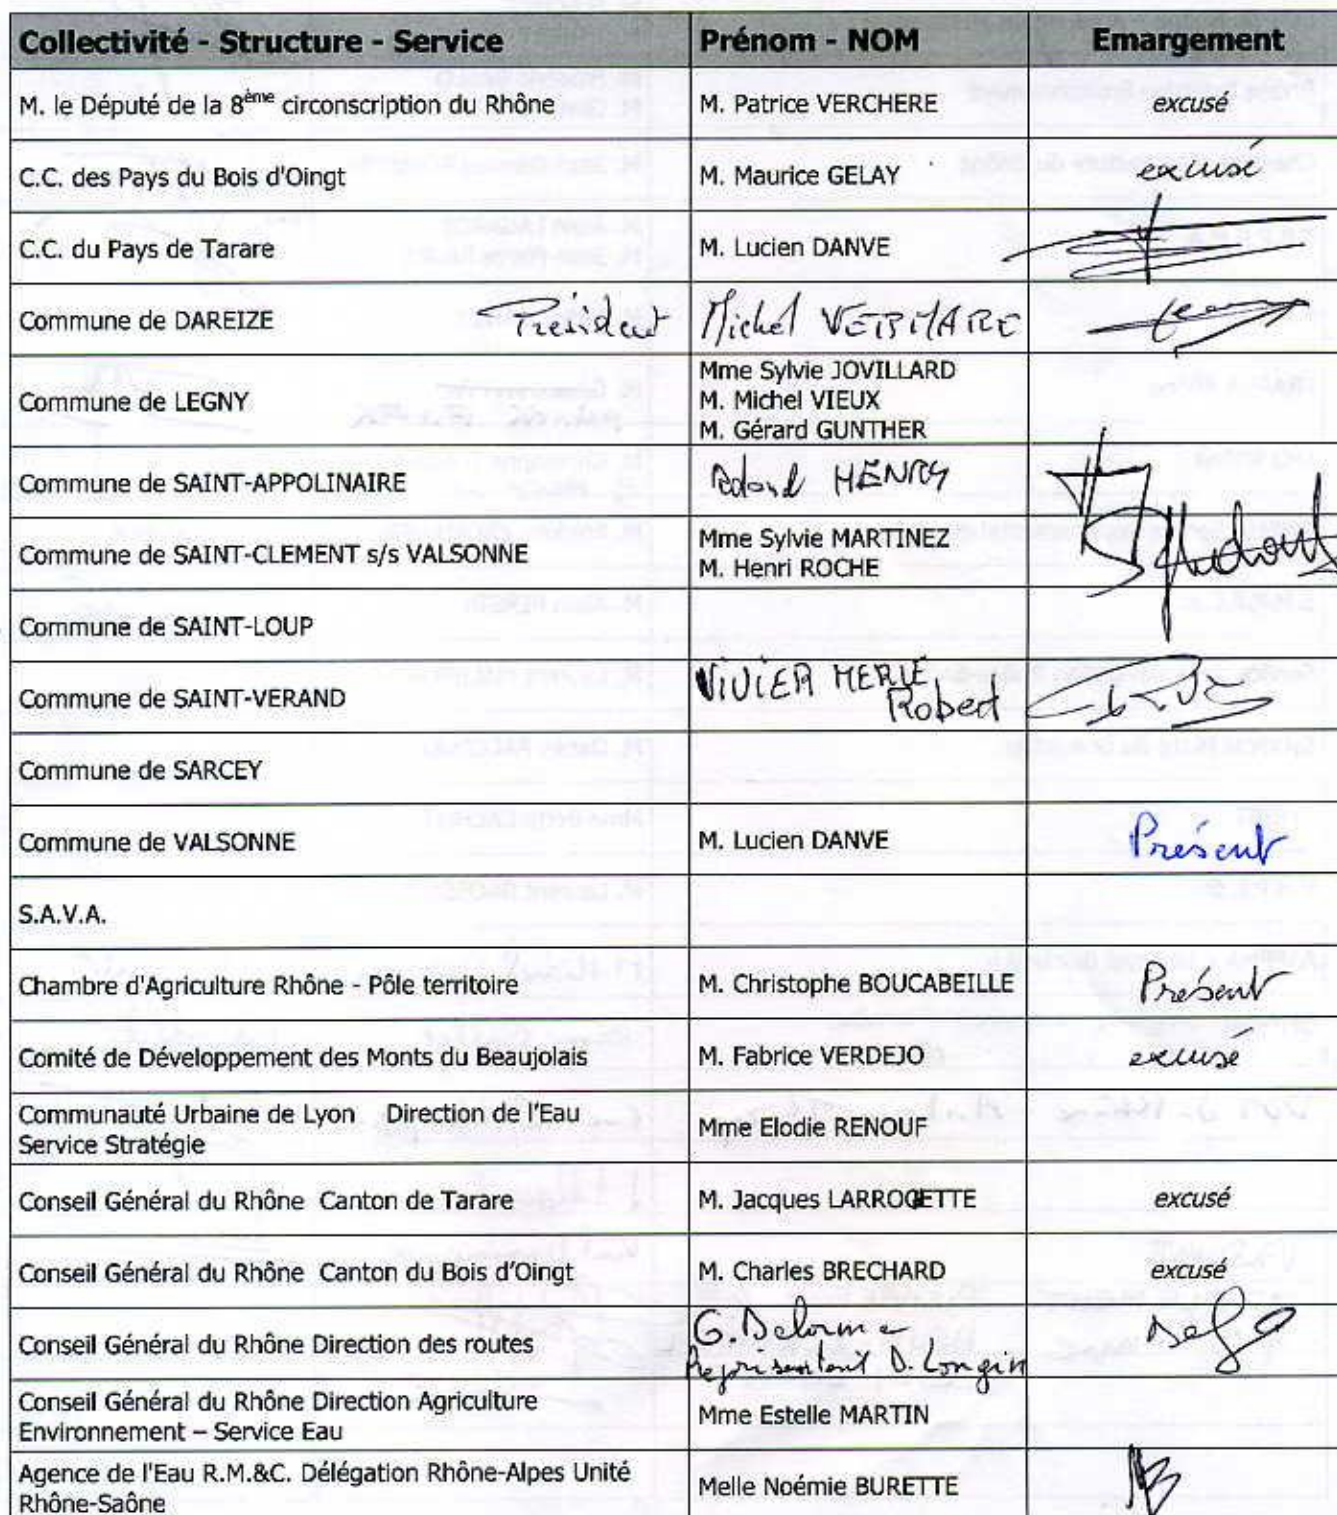 Collectivité - Structure - Service Prénom - NOM Emargement
M. le Député de la 8ème circonscription du Rhône M. Patrice VERCHERE excusé
C.C. des Pays du Bois d'Oingt M. Maurice GELAY excusé
C.C. du Pays de Tarare M. Lucien DANVE
Commune de DAREIZE Président Michel VERMARE
Commune de LEGNY
Mme Sylvie JOVILLARD
M. Michel VIEUX
M. Gérard GUNTHER
Commune de SAINT-APPOLINAIRE HENRY
Commune de SAINT-CLEMENT s/s VALSONNE
Mme Sylvie MARTINEZ
M. Henri ROCHE
Commune de SAINT-LOUP
Commune de SAINT-VERAND
VIVIER MERLE
Robert
Commune de SARCEY
Commune de VALSONNE M. Lucien DANVE Présent
S.A.V.A.
Chambre d'Agriculture Rhône - Pôle territoire M. Christophe BOUCABEILLE Présent
Comité de Développement des Monts du Beaujolais M. Fabrice VERDEJO excusé
Communauté Urbaine de Lyon Direction de l'Eau
Service Stratégie
Mme Elodie RENOUF
Conseil Général du Rhône Canton de Tarare M. Jacques LARROQETTE excusé
Conseil Général du Rhône Canton du Bois d'Oingt M. Charles BRECHARD excusé
Conseil Général du Rhône Direction des routes
G. Delorme
Représentant D. Longin
Conseil Général du Rhône Direction Agriculture
Environnement – Service Eau
Mme Estelle MARTIN
Agence de l'Eau R.M.&C. Délégation Rhône-Alpes Unité
Rhône-Saône
Melle Noémie BURETTE